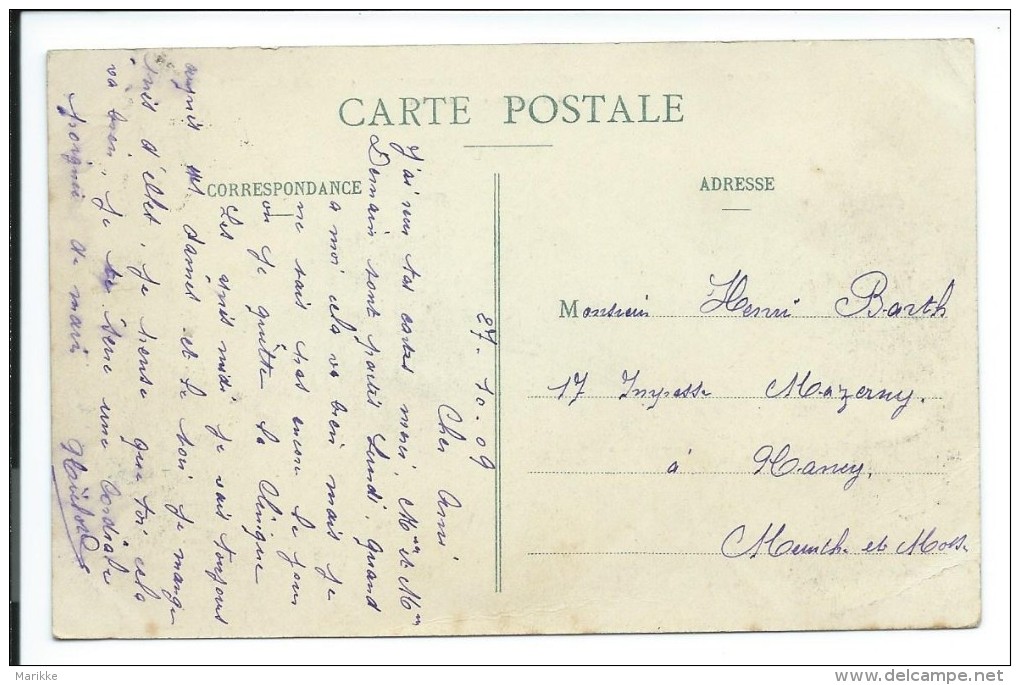 CARTE POSTALE
CORRESPONDANCE
ADRESSE
27. 10. 09
Cher Ami
J'ai reçu tas cartes merci, Mr et Mm
Demain sont partis Lundi, quand
a moi cela va bien mais je
ne sais pas encore le jour
ou je quitte la clinique
Les après midi je vais toujours
dames et le soir je mange
près d'elles. je pense que toi cela
va bien, je te serre une cordiale
poignée de main
Monsieur Henri Barth
17 Impasse Mazerny.
à Nancy.
Meurthe et Mose
Marikke
www.delcampe.net